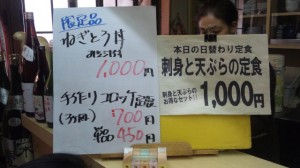 限定品
ねぎとろ丼
1,000円
手作りコロッケ定食
(3ヶ)
700円
単品
450円
本日の日替わり定食
刺身と天ぷらの定食
刺身と天ぷらの
お得なセット!!
1,000円